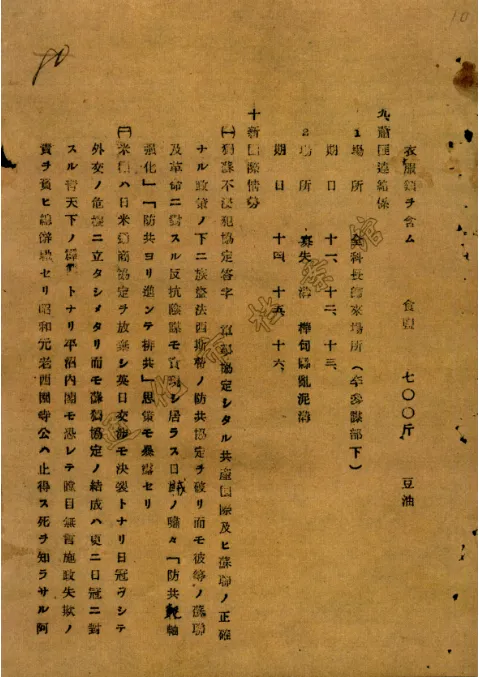 衣服類ヲ含ム　食鹽　七〇〇斤　豆油
九、蕭匪連絡係
1場　所　金科長歸來場所（辛參謀部下）
期　日　十一、十二、十三、
2場　所　樺甸縣亂泥溝
期　日　十四、十五、十六、
十、新國際情勢
㈠獨蘇不侵犯協定簽字　協定シタル共產國際及ヒ蘇聯ノ正確
ナル政策ノ下ニ族盜法西斯格ノ防共協定ヲ破リ而モ彼等ノ蘇聯
及革命ニ對スル反抗陰謀モ實現シ居ラス日賊ノ嘯々「防共軸
强化」「防共ヨリ進ンテ排共」愚策モ暴露セリ
㈡米國ハ日米通商協定ヲ放棄シ英日交涉モ決裂トナリ日冠ヲシテ
外交ノ危機ニ立タシメタリ而モ蘇獨協定ノ結成ハ更ニ日冠ニ對
スル晋天下ノ トナリ平沼內閣モ恐レテ瞠目無言施政失敗ノ
責ヲ負ヒ總辭職セリ昭和元老西園寺公ハ止得ス死ヲ知ラサル阿
10